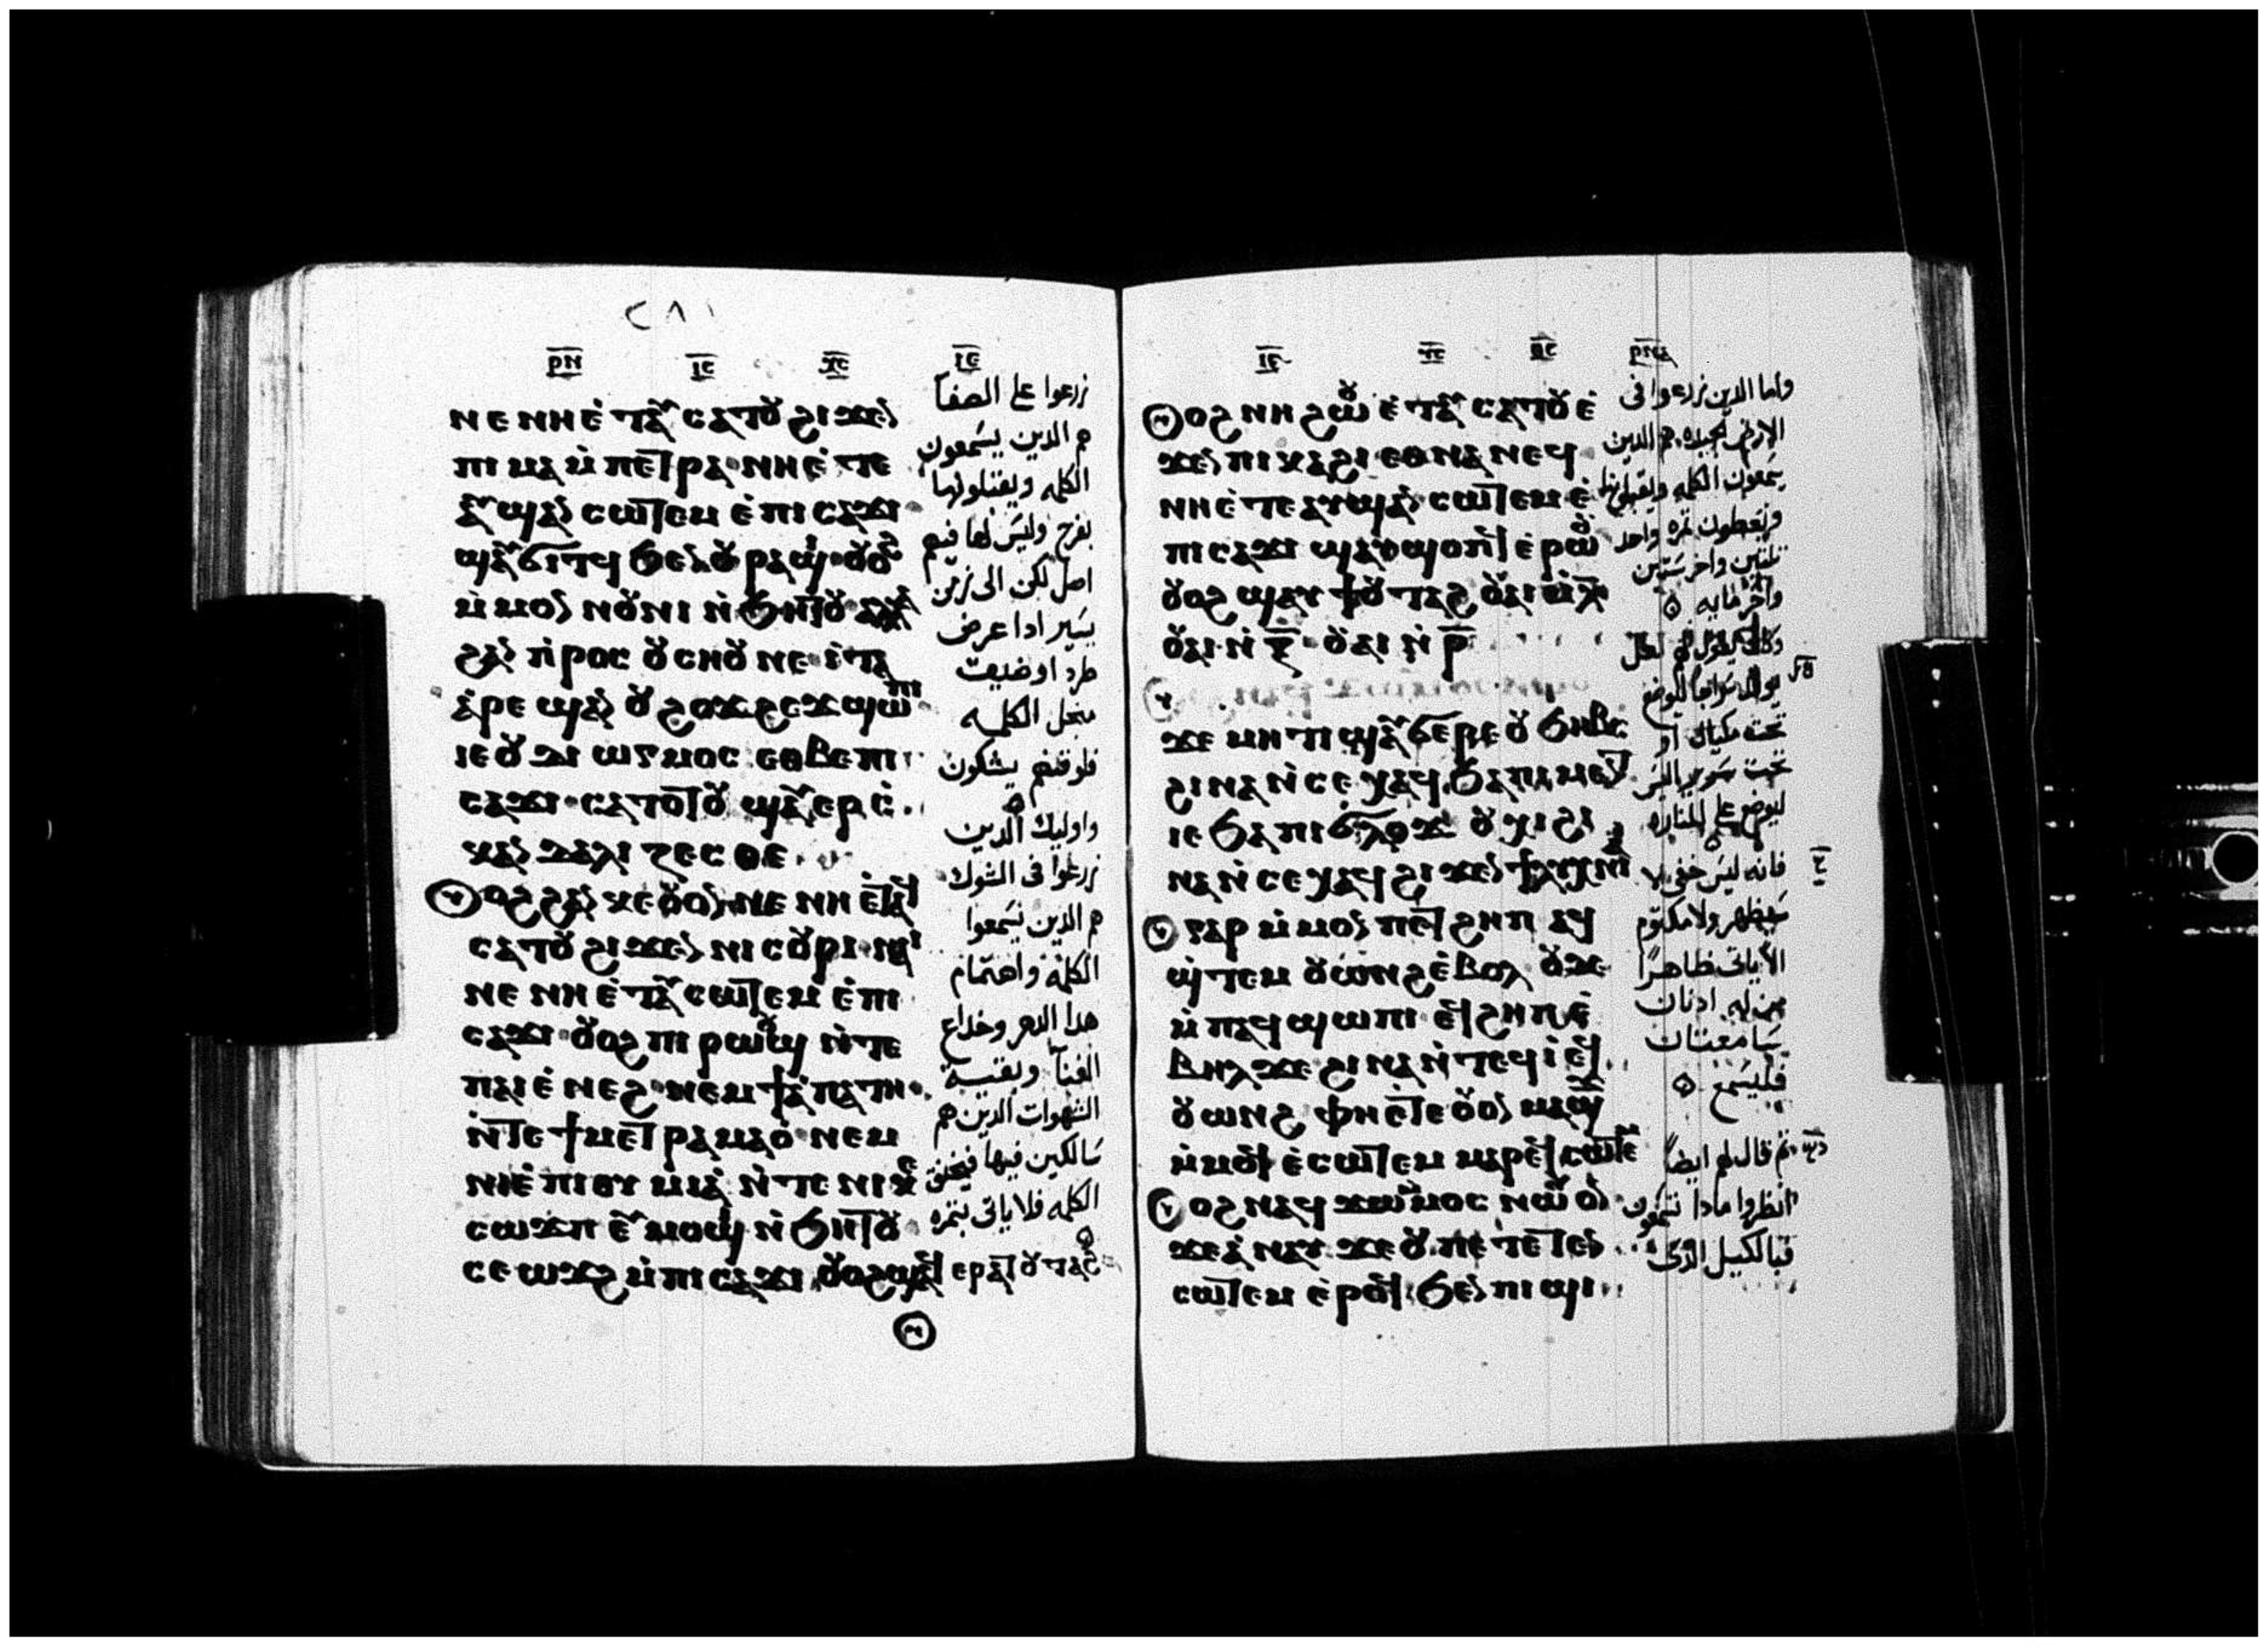 ⲣⲛ ⲓⲥ ⲭⲥ ⲓⲉ
ⲛⲉ ⲛⲏⲉ̀ⲧⲁⲩ ⲥⲁⲧⲟⲩ ϩⲓϫⲉⲛ
ⲡⲓ ⲙⲁ ⲙ̀ⲡⲉⲧⲣⲁ ⲛⲏⲉ̀ⲧⲉ
ⲁⲩϣⲁⲛ ⲥⲱⲧⲉⲙ ⲉ̀ⲡⲓⲥⲁϫⲓ
ϣⲁⲩϭⲓⲧϥ ϧⲉⲛ ⲟⲩⲣⲁϣⲓ ⲟⲩⲟϩ
ⲙ̀ⲙⲟⲛ ⲛⲟⲩⲛⲓ ⲛ̀ϧⲏⲧⲟⲩ ⲁⲗⲗⲁ
ϩⲁⲛ ⲡ̀ⲣⲟⲥ ⲟⲩⲥⲏⲟⲩ ⲛⲉ ⲓ̀ⲧⲁ
ⲁ̀ⲣⲉϣⲁⲛ ⲟⲩϩⲟϫϩⲉϫ ϣⲱⲡⲓ
ⲓⲉ ⲟⲩⲇⲓⲱⲅⲙⲟⲥ ⲉⲑⲃⲉ ⲡⲓ
ⲥⲁϫⲓ ⲥⲁⲧⲟⲧⲟⲩ ϣⲁⲩⲉⲣⲉ̀
ⲥⲕⲁⲛⲇⲁⲗⲓⲍⲉⲥⲑⲉ
ⲟϩ ϩⲁⲛ ⲕⲉⲟⲩⲟⲛ ⲛⲉ ⲛⲏ ⲉ̀ⲧⲁⲩ
ⲥⲁⲧⲟⲩ ϩⲓϫⲉⲛ ⲛⲓⲥⲟⲩⲣⲓ ⲛⲁⲓ
ⲛⲉ ⲛⲏ ⲉ̀ⲧⲁⲩⲥⲱⲧⲉⲙ ⲉ̀ⲡⲓ
ⲥⲁϫⲓ ⲟⲩⲟϩ ⲡⲓⲣⲱⲟⲩϣ ⲛ̀ⲧⲉ
ⲡⲁⲓⲉ̀ⲛⲉϩ ⲛⲉⲙ ϯⲁ̀ⲡⲁⲧⲏ
ⲛ̀ⲧⲉ ϯⲙⲉⲧⲣⲁⲙⲁⲟ̀ ⲛⲉⲙ
ⲛⲓⲉ̀ⲡⲓⲑⲩⲙⲓⲁ̀ ⲛ̀ⲧⲉ ⲛⲓⲕⲉ
ⲥⲱϫⲡ ⲉⲩⲙⲟϣⲓ ⲛ̀ϧⲏⲧⲟⲩ
ⲥⲉⲱϫϩ ⲙ̀ⲡⲓⲥⲁϫⲓ ⲟⲩⲟϩ ϣⲁϥⲉⲣⲁⲧⲟⲩⲧⲁϩ
زرعوا على الصفا
هم الدين يسمعون
الكلمه ويقبلولها
بفرح وليس لها فيهم
اصل لكن الى زمن
يسير ادا عرض
طرد او ضيقه
من اجل الكلمه
فلوقتهم يشكون
واوليك الدين
زرعوا فى الشوك
هم الدين يسمعوا
الكلمه واهتمام
هدا الدهر وخداع
الغنا وبقيه
الشهوات الدين هم
سالكين فيها فيخنق
الكلمه فلا ياتى بثمره
ⲓⲥ ⲭⲥ ⲣⲛⲁ
ⲟϩ ⲛⲏ ϩⲱⲟⲩ ⲉ̀ⲧⲁⲩ ⲥⲁⲧⲟⲩ ⲉ̀
ϫⲉⲛ ⲡⲓⲕⲁϩⲓ ⲉⲑⲛⲁⲛⲉϥ
ⲛⲏⲉ̀ⲧⲉ ⲁⲩϣⲁⲛ ⲥⲱⲧⲉⲙ ⲉ̀
ⲡⲓⲥⲁϫⲓ ϣⲁⲩϣⲟⲡϥ ⲉ̀ⲣⲱⲟⲩ
ⲟⲩⲟϩ ϣⲁⲩϯⲟⲩⲧⲁϩ ⲟⲩⲁⲓ ⲛ̀ⲗ̅
ⲟⲩⲁⲓ ⲛ̀ⲝ̅ ⲟⲩⲁⲓ ⲛ̀ⲣ̅
ϫⲉ ⲙⲏⲧⲓ ϣⲁⲩϭⲉⲣⲉ ⲟⲩϧⲏⲃⲥ
ϩⲓⲛⲁ ⲛ̀ⲥⲉⲭⲁϥ ϧⲁ ⲡⲓⲙⲉⲛⲧ
ⲓⲉ ϧⲁ ⲡⲓϭⲗⲟϫ ⲟⲩⲭⲓ ϩⲓ
ⲛⲁ ⲛ̀ⲥⲉⲭⲁϥ ϩⲓϫⲉⲛ ϯⲗⲩⲭⲛⲓⲁ
ⲅⲁⲣ ⲙ̀ⲙⲟⲛ ⲡⲉⲧϩⲏⲡ ⲁϥ
ϣ̀ⲧⲉⲙ ⲟⲩⲱⲛϩ ⲉ̀ⲃⲟⲗ ⲟⲩⲇⲉ
ⲙ̀ⲡⲁϥϣⲱⲡⲓ ⲉϥϩⲏⲡ ⲉ̀
ⲃⲏⲗ ϫⲉ ϩⲓⲛⲁ ⲛ̀ⲧⲉϥⲓ̀ ⲉⲩ
ⲟⲩⲱⲛϩ ⲫⲏⲉ̀ⲧⲉ ⲟⲩⲟⲛ ⲙⲁϣϫ
ⲙ̀ⲙⲟϥ ⲉ̀ⲥⲱⲧⲉⲙ ⲙⲁⲣⲉϥⲥⲱⲧⲉⲙ
ⲟϩ ⲛⲁϥϫⲱⲙ̀ⲙⲟⲥ ⲛⲱⲟⲩ ⲟⲛ
ϫⲉ ⲁ̀ⲛⲁⲩ ϫⲉ ⲟⲩ ⲡⲉ ⲧⲉⲧⲉⲛ
ⲥⲱⲧⲉⲙ ⲉ̀ⲣⲟϥ ϧⲉⲛ ⲡⲓϣⲓ
واما الدين زرعوا فى
الارض الجيده هم الدين
يسمعون الكلمه ويقبلونها
ويعطون ثمره واحد
ثلثين واخر ستين
واخر مايه
وكان يقول لهم لعل
يوقد سراجا ليوضع
تحت مكيال او
تحت سرير اليس
ليوضع على المناره
فانه ليس خفى لا
سيظهر ولا مكتوم
الا ياتى ظاهرا
من له ادنان
سامعتان
فليسمع
ثم قال لهم ايضا
انظروا مادا تسمعون
فبالكيل الدى